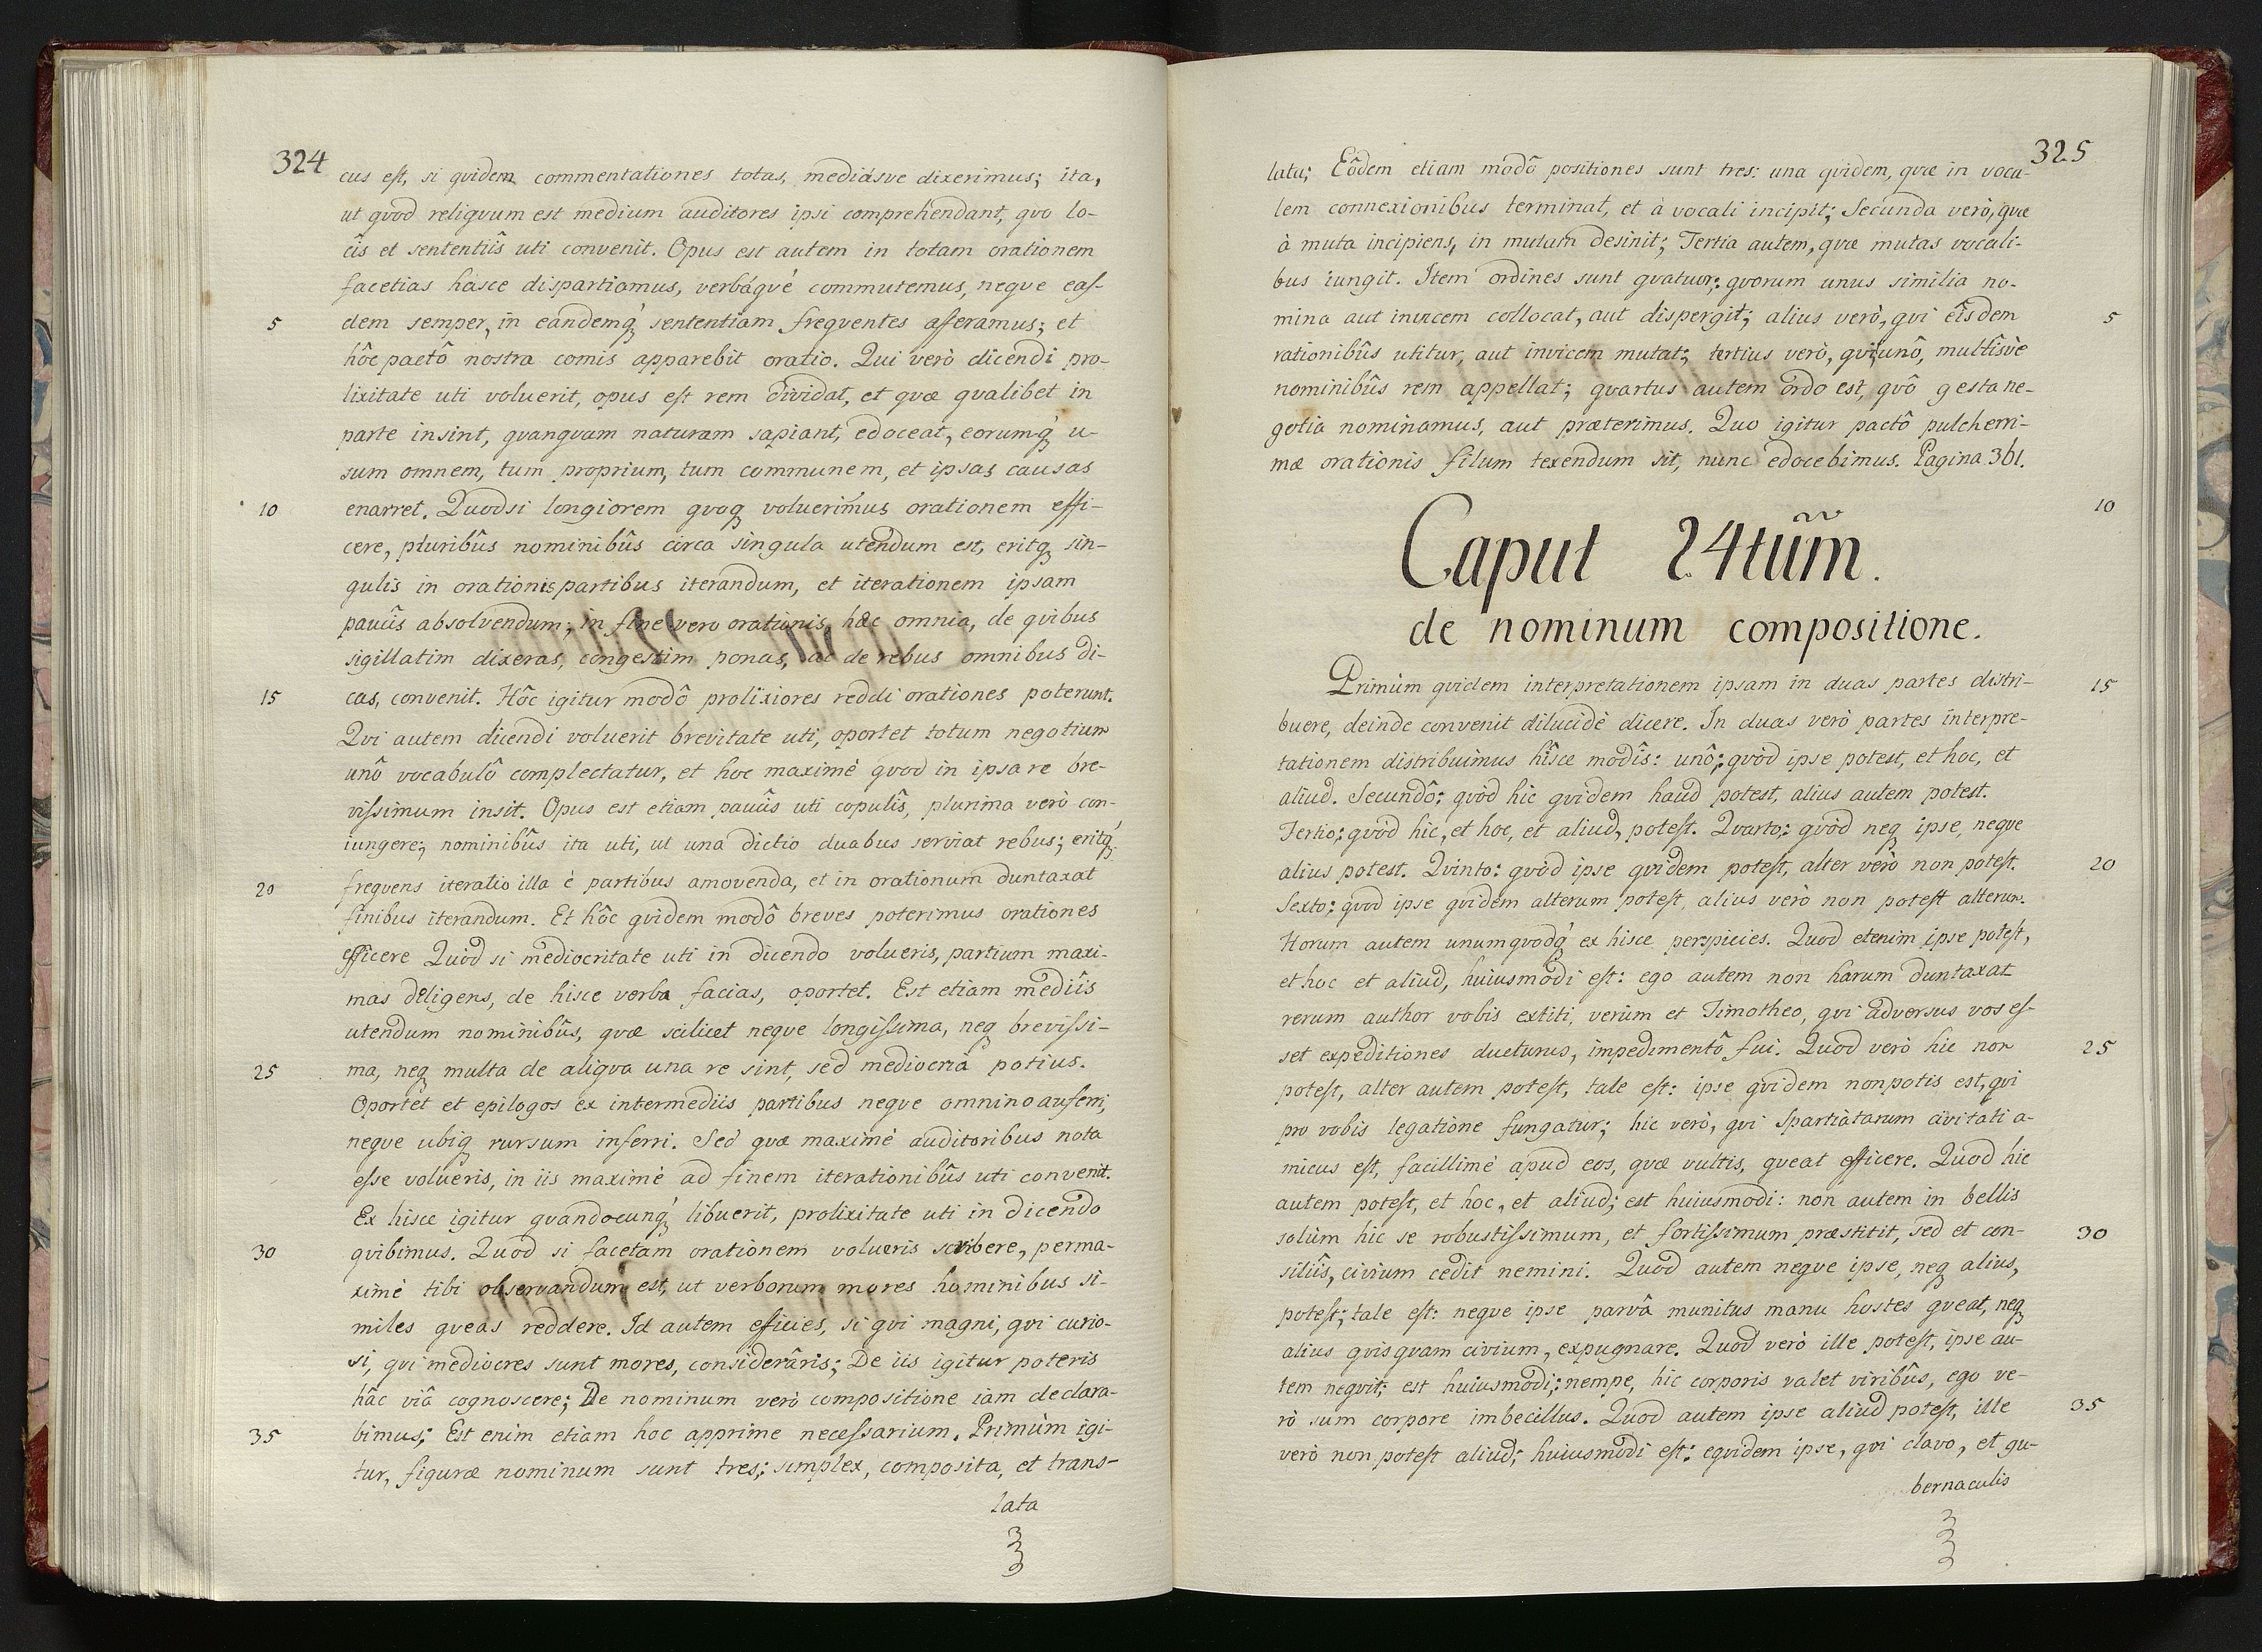 324
cus est, si qvidem commentationes totas, mediásve dixerimus; ita,
ut qvod religvum est medium auditores ipsi comprehendant, qvo lo-
cîs et sententiîs uti convenit. Opus est autem in totam orationem
facetias hasce dispartiamus, verbáqvé commutemus, neqve eas-
5 dem semper, in eandemq́ sententiam freqventes afferamus; et
hôc pactô nostra comis apparebit oratio. Qui verò dicendi pro-
lixitate uti voluerit, opus est rem dividat, et qvæ qvalibet in
parte insint, qvanqvam naturam sapiant, edoceat, eorumq́ u-
sum omnem, tum proprium, tum communem, et ipsas causas
10 enarret. Quodsi longiorem qvoq voluerimus orationem effi-
cere, pluribûs nominibûs circa singula utendum est, eritq sin-
gulis in orationis partibus iterandum, et iterationem ipsam
paucîs absolvendum; in fine vero orationis, hæc omnia, de qvibus
sigillatim dixeras, congestim ponas, ac de rebus omnibus di-
15 cas, convenit. Hôc igitur modô prolixiores reddi orationes poterunt.
Qvi autem dicendi voluerit brevitate uti, oportet totum negotium
unô vocabulô complectatur, et hoc maximè qvod in ipsa re bre-
vissimum insit. Opus est etiam paucîs uti copulîs, plurima verò con-
iungere; nominibûs ita uti, ut una dictio duabus serviat rebus; eritq́
20 freqvens iteratio illa è partibus amovenda, et in orationum duntaxat
finibus iterandum. Et hôc qvidem modô breves poterimus orationes
efficere Quòd si mediocritate uti in dicendo volueris, partium maxi-
mas deligens, de hisce verba facias, oportet. Est etiam mediîs
utendum nominibûs, qvæ scilicet neqve longissima, neq brevissi-
25 ma, neq multa de aliqva una re sint, sed mediocria potius.
Oportet et epilogos ex intermediis partibus neqve omnino auferri,
neqve ubiq rursum inferri. Sed qvæ maximè auditoribus nota
esse volueris, in iis maximè ad finem iterationibûs uti convenit.
Ex hisce igitur qvandocunq́ libuerit, prolixitate uti in dicendo
30 qvibimus. Quod si facetam orationem volueris scribere, perma-
ximè tibi observandum est, ut verborum mores hominibus si-
miles qveas reddere. Id autem efficies, si qvi magni, qvi curio-
si, qvi mediocres sunt mores, considerâris; De iis igitur poteris
hâc viâ cognoscere; De nominum verò compositione iam declara-
35 bimus; Est enim etiam hoc apprime necessarium. Primùm igi-
tur, figuræ nominum sunt tres; simplex, composita, et trans-
lata
325
lata; Eôdem etiam modô positiones sunt tres: una qvidem, qvæ in voca-
lem connexionibus terminat, et à vocali incipit; Secunda verò, qvæ
à muta incipiens, in mutam desinit; Tertia autem, qvæ mutas vocali-
bus iungit. Item ordines sunt qvatuor; qvorum unus similia no-
mina aut invicem collocat, aut dispergit; alius verò, qvi eîsdem 5
rationibûs utitur, aut invicem mutat; tertius verò, qvi unô, multîsvè
nominibûs rem appellat; qvartus autem ordo est, qvô gesta ne-
gotia nominamus, aut præterimus. Quo igitur pactô pulcherri-
mæ orationis filum texendum sit, nunc edocebimus. Pagina 361.
10
Caput 24tum.
de nominum compositione.
Primùm qvidem interpretationem ipsam in duas partes distri- 15
buere, deinde convenit dilucidè dicere. In duas verò partes interpre-
tationem distribuimus hîsce modîs: unô; qvòd ipse potest, et hoc, et
aliud. Secundô; qvòd hic qvidem haud potest, alius autem potest.
Tertio; qvòd hic, et hoc, et aliud, potest. Qvarto; qvòd neq ipse, neqve
alius potest. Qvinto: qvòd ipse qvidem potest, alter verò non potest. 20
Sexto; qvod ipse qvidem alterum potest, alius verò non potest alterum.
Horum autem unumqvodq́ ex hisce perspicies. Quod etenim ipse potest,
et hoc et aliud, huiusmodi est: ego autem non harum duntaxat
rerum author vobis extiti, verùm et Timotheo, qvi adversus vos es-
set expeditiones ducturus, impedimentô fui. Quod verò hic non 25
potest, alter autem potest, tale est: ipse qvidem non potis est, qvi
pro vobis legatione fungatur; hic verò, qvi Spartiatarum civitati a-
micus est, facillimè apud eos, qvæ vultis, qveat efficere. Quod hic
autem potest, et hoc, et aliud; est huiusmodi: non autem in bellis
solùm hic se robustissimum, et fortissimum præstitit, sed et con- 30
siliîs, civium cedit nemini. Quod autem neqve ipse, neq alius,
potest; tale est: neqve ipse parvâ munitus manu hostes qveat, neq
alius qvisqvam civium, expugnare. Quod verò ille potest, ipse au-
tem neqvit; est huiusmodi; nempe, hic corporis valet viribûs, ego ve-
rò sum corpore imbecillus. Quod autem ipse aliud potest, ille 35
verò non potest aliud; huiusmodi est: eqvidem ipse, qvi clavo, et gu-
bernaculis